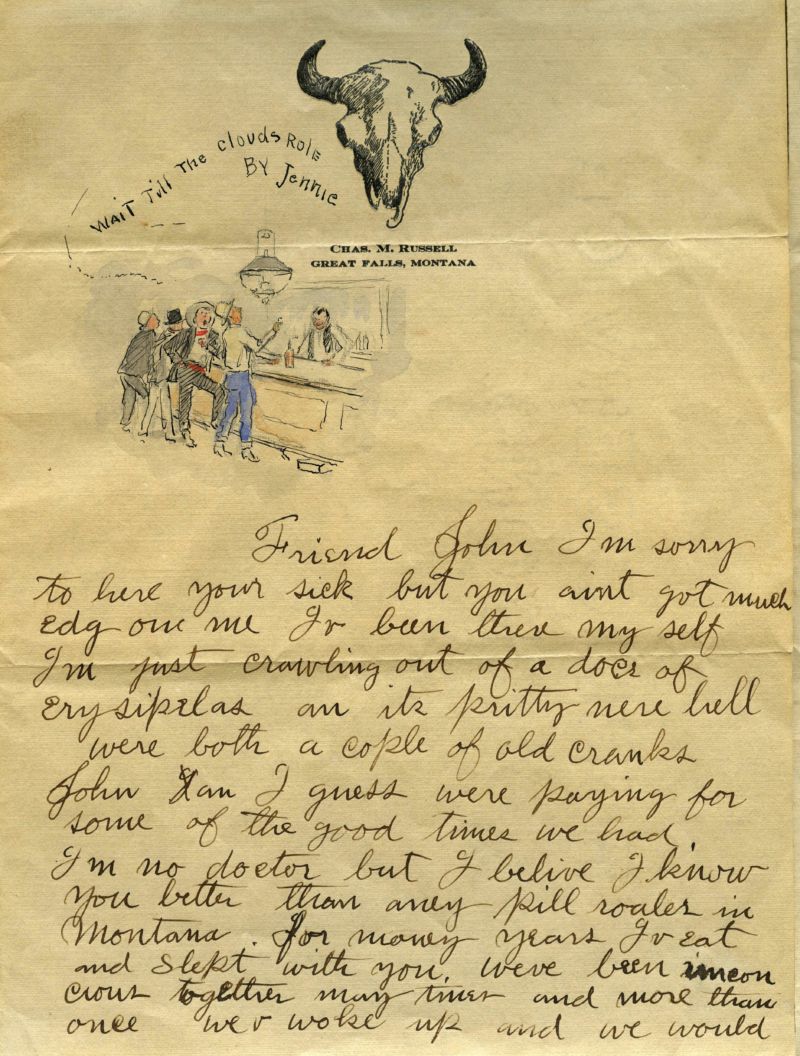 WAIT Till THe Clouds Role
BY JeNNie
CHAS. M. RUSSELL
GREAT FALLS, MONTANA
Friend John I'm sorry
to here your sick but you aint got much
edg one me Iv been there my self
I'm just crawling out of a doce of
erysipelas an its pritty nere hell
were both a cople of old cranks
John an I guess were paying for
some of the good times we had
I'm no doctor but I belive I know
you better than aney pill roaler in
Montana. for maney years Iv eat
and slept with you. weve been uncon
cious together may times and more than
once wev woke up and we would